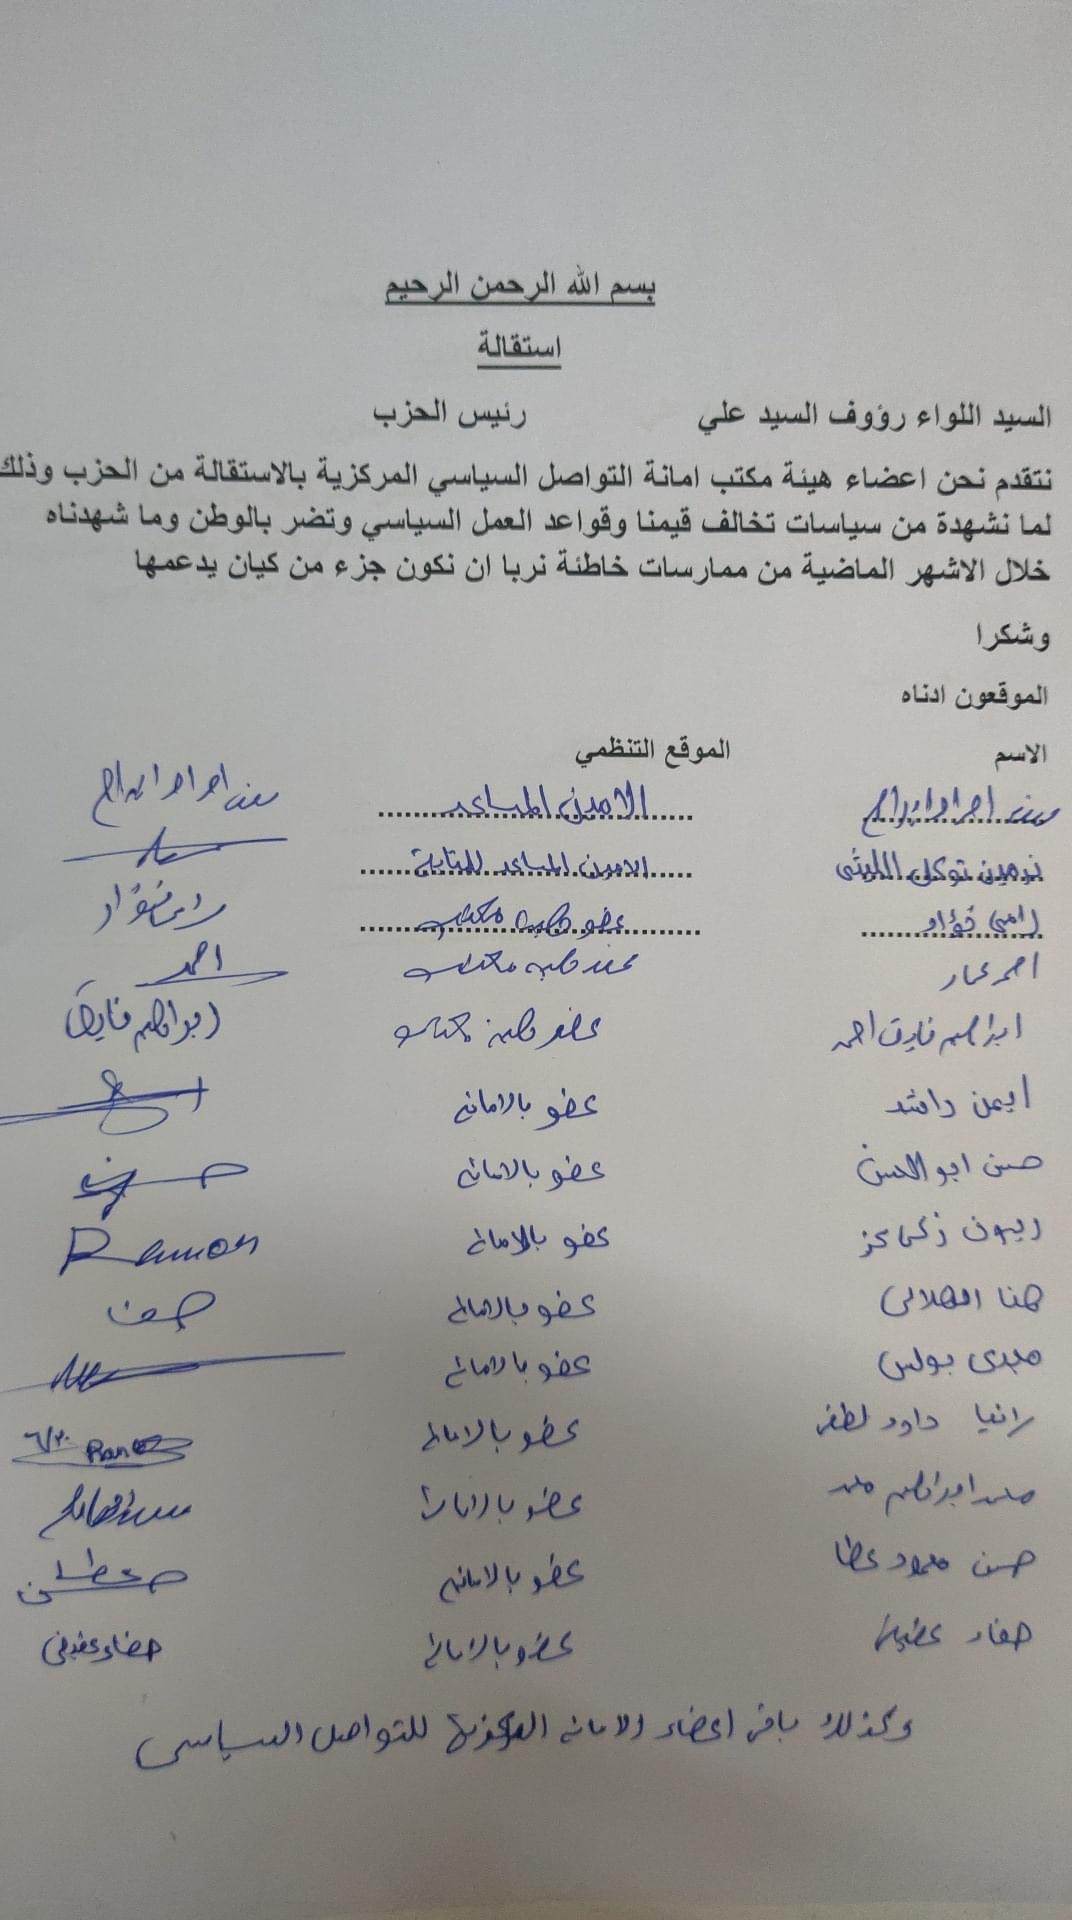 بسم الله الرحمن الرحيم
استقالة
السيد اللواء رؤوف السيد علي رئيس الحزب
نتقدم نحن اعضاء هيئة مكتب امانة التواصل السياسي المركزية بالاستقالة من الحزب وذلك
لما نشهدة من سياسات تخالف قيمنا وقواعد العمل السياسي وتضر بالوطن وما شهدناه
خلال الاشهر الماضية من ممارسات خاطئة نربا ان نكون جزء من كيان يدعمها
وشكرا
الموقعون ادناه
الاسم الموقع التنظمي
الامين المساعد
نرمين توكل الليثى الامين المساعد للمتابعة
رامى فؤاد عضو هيئة مكتب رامى فؤاد
احمد عمار عضو هيئة مكتب احمد
ابراهيم فاروق احمد عضو هيئة مكتب ابراهيم فاروق
ايمن راشد عضو بالامانه
حسن ابو الحسن عضو بالامانه
ريمون زكى عضو بالامانه Ramon
هنا الهلالى عضو بالامانه
مجدى بولس عضو بالامانه
رانيا داود لطفى عضو بالامانه ٦/٣٠
محمد ابراهيم محمد عضو بالامانة
حسن محمود عطا عضو بالامانه حسن عطا
صفاء عفيفى عضو بالامانه صفاء عفيفى
وكذلك باقى اعضاء الامانه المركزية للتواصل السياسى